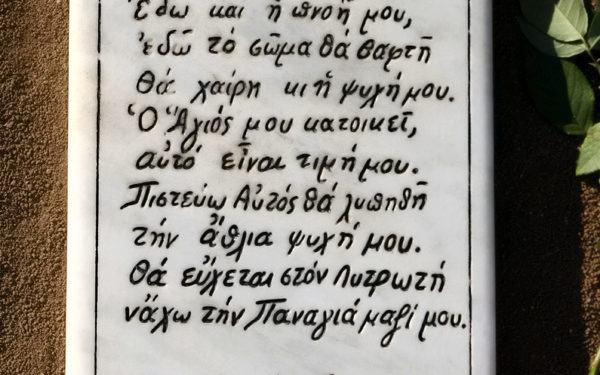 Ἐδῶ και ἡ πνοή μου,
ἐδῶ τό σῶμα θά θαφτῆ
Θά χαίρη κι ἡ ψυχή μου.
Ὁ Ἅγιός μου κατοικεῖ,
αὐτό εἶναι τιμή μου.
Πιστεύω Αὐτός θά λυπηθῆ
τήν ἄθλια ψυχή μου.
Θά εὔχεται στόν Λυτρωτή
νἄχω τήν Παναγιά μαζί μου.